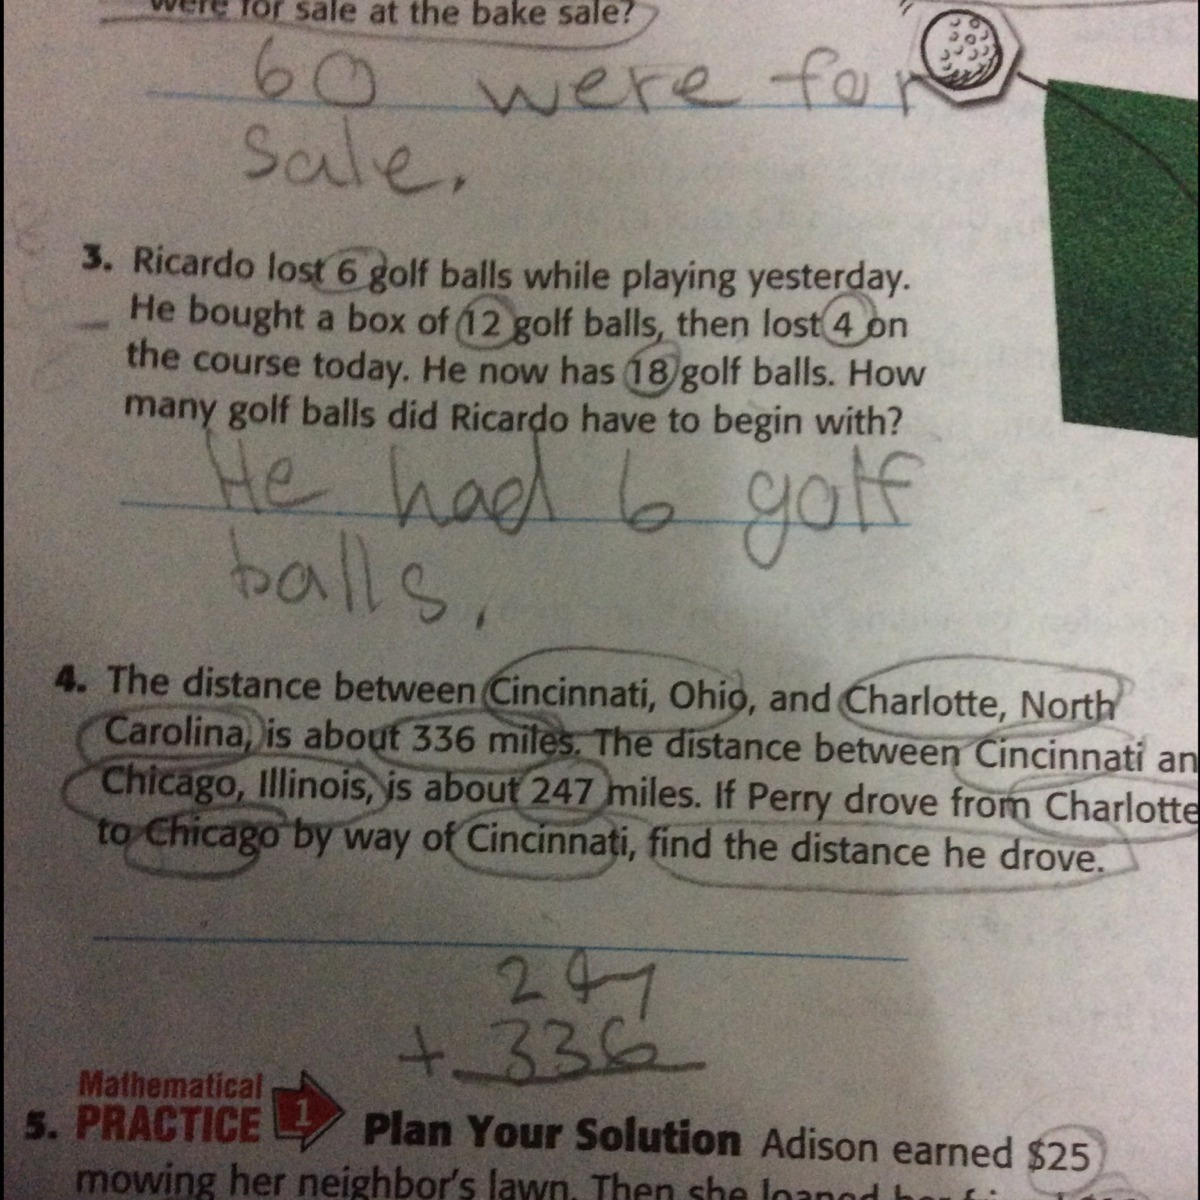 were for sale at the bake sale?
60 were for
sale.
3. Ricardo lost 6 golf balls while playing yesterday.
He bought a box of 12 golf balls, then lost 4 on
the course today. He now has 18 golf balls. How
many golf balls did Ricardo have to begin with?
He had 6 golf
balls.
4. The distance between Cincinnati, Ohio, and Charlotte, North
Carolina, is about 336 miles. The distance between Cincinnati an
Chicago, Illinois, is about 247 miles. If Perry drove from Charlotte
to Chicago by way of Cincinnati, find the distance he drove.
247
+ 336
Mathematical
5. PRACTICE 1 Plan Your Solution Adison earned $25
mowing her neighbor's lawn. Then she loaned her